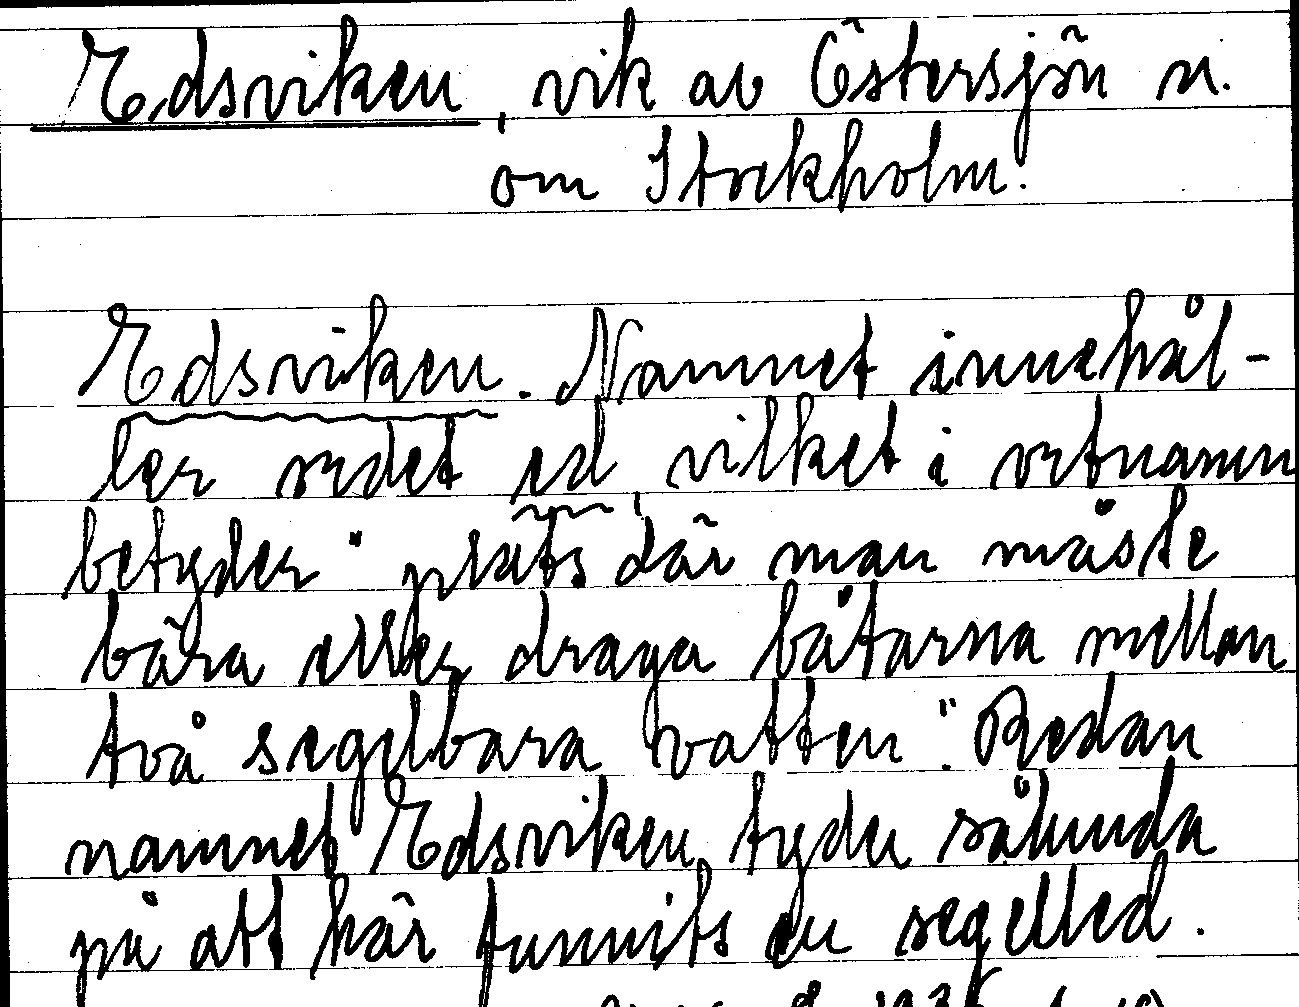 Edsviken, vik av Östersjön n.
om Stockholm.
Edsviken. Namnet innehål-
ler ordet ed, vilket i ortnamn
betyder "plats där man måste
bära eller draga båtarna mellan
två segelbara vatten". Redan
namnet Edsviken tyder sålunda
på att här funnits en segelled.